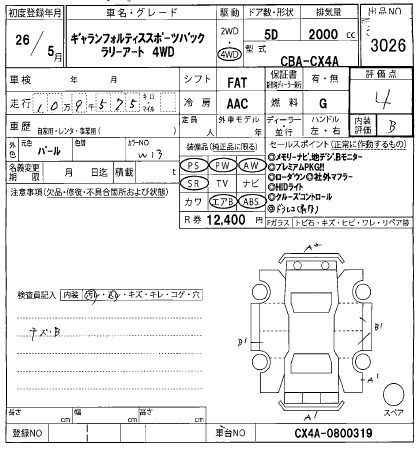 初度登録年月 車名・グレード 駆動 ドア数・形状 排気量 出品NO
26/5月 ギャランフォルティススポーツバック ラリーアート 4WD 2WD・4WD 5D 2000 cc 3026
型式 CBA-CX4A
車検 年 月 シフト FAT 保証書 有・無 評価点
走行 10万9千575 キロ・マイル 冷房 AAC 燃料 G 4
車歴 自家用・レンタ・事業用( ) 定員 人 外車モデル 年 ディーラー・並行 ハンドル 左・右 内装評価 B
外色 元色 パール 色替 カラーNO W13
装備品(純正品に限る) セールスポイント(正常に作動するもの)
名義変更期限 月 日迄 積載 t
PS PW AW
SR TV ナビ
カワ エアB ABS
R券 12,400 円
◎メモリーナビ、地デジ、Bモニター
◎プレミアムPKG!!
◎ローダウン◎社外マフラー
◎HIDライト
◎クルーズコントロール
注意事項(欠品・修復・不具合箇所および状態)
Fガラス トビ石・キズ・ヒビ・ワレ・リペア跡
A2
検査員記入 内装 汚れ・スレ・キズ・キレ・コゲ・穴
B1
B1
A1
A1
スペア
長さ cm 幅 cm 高さ cm
登録NO 車台NO CX4A-0800319